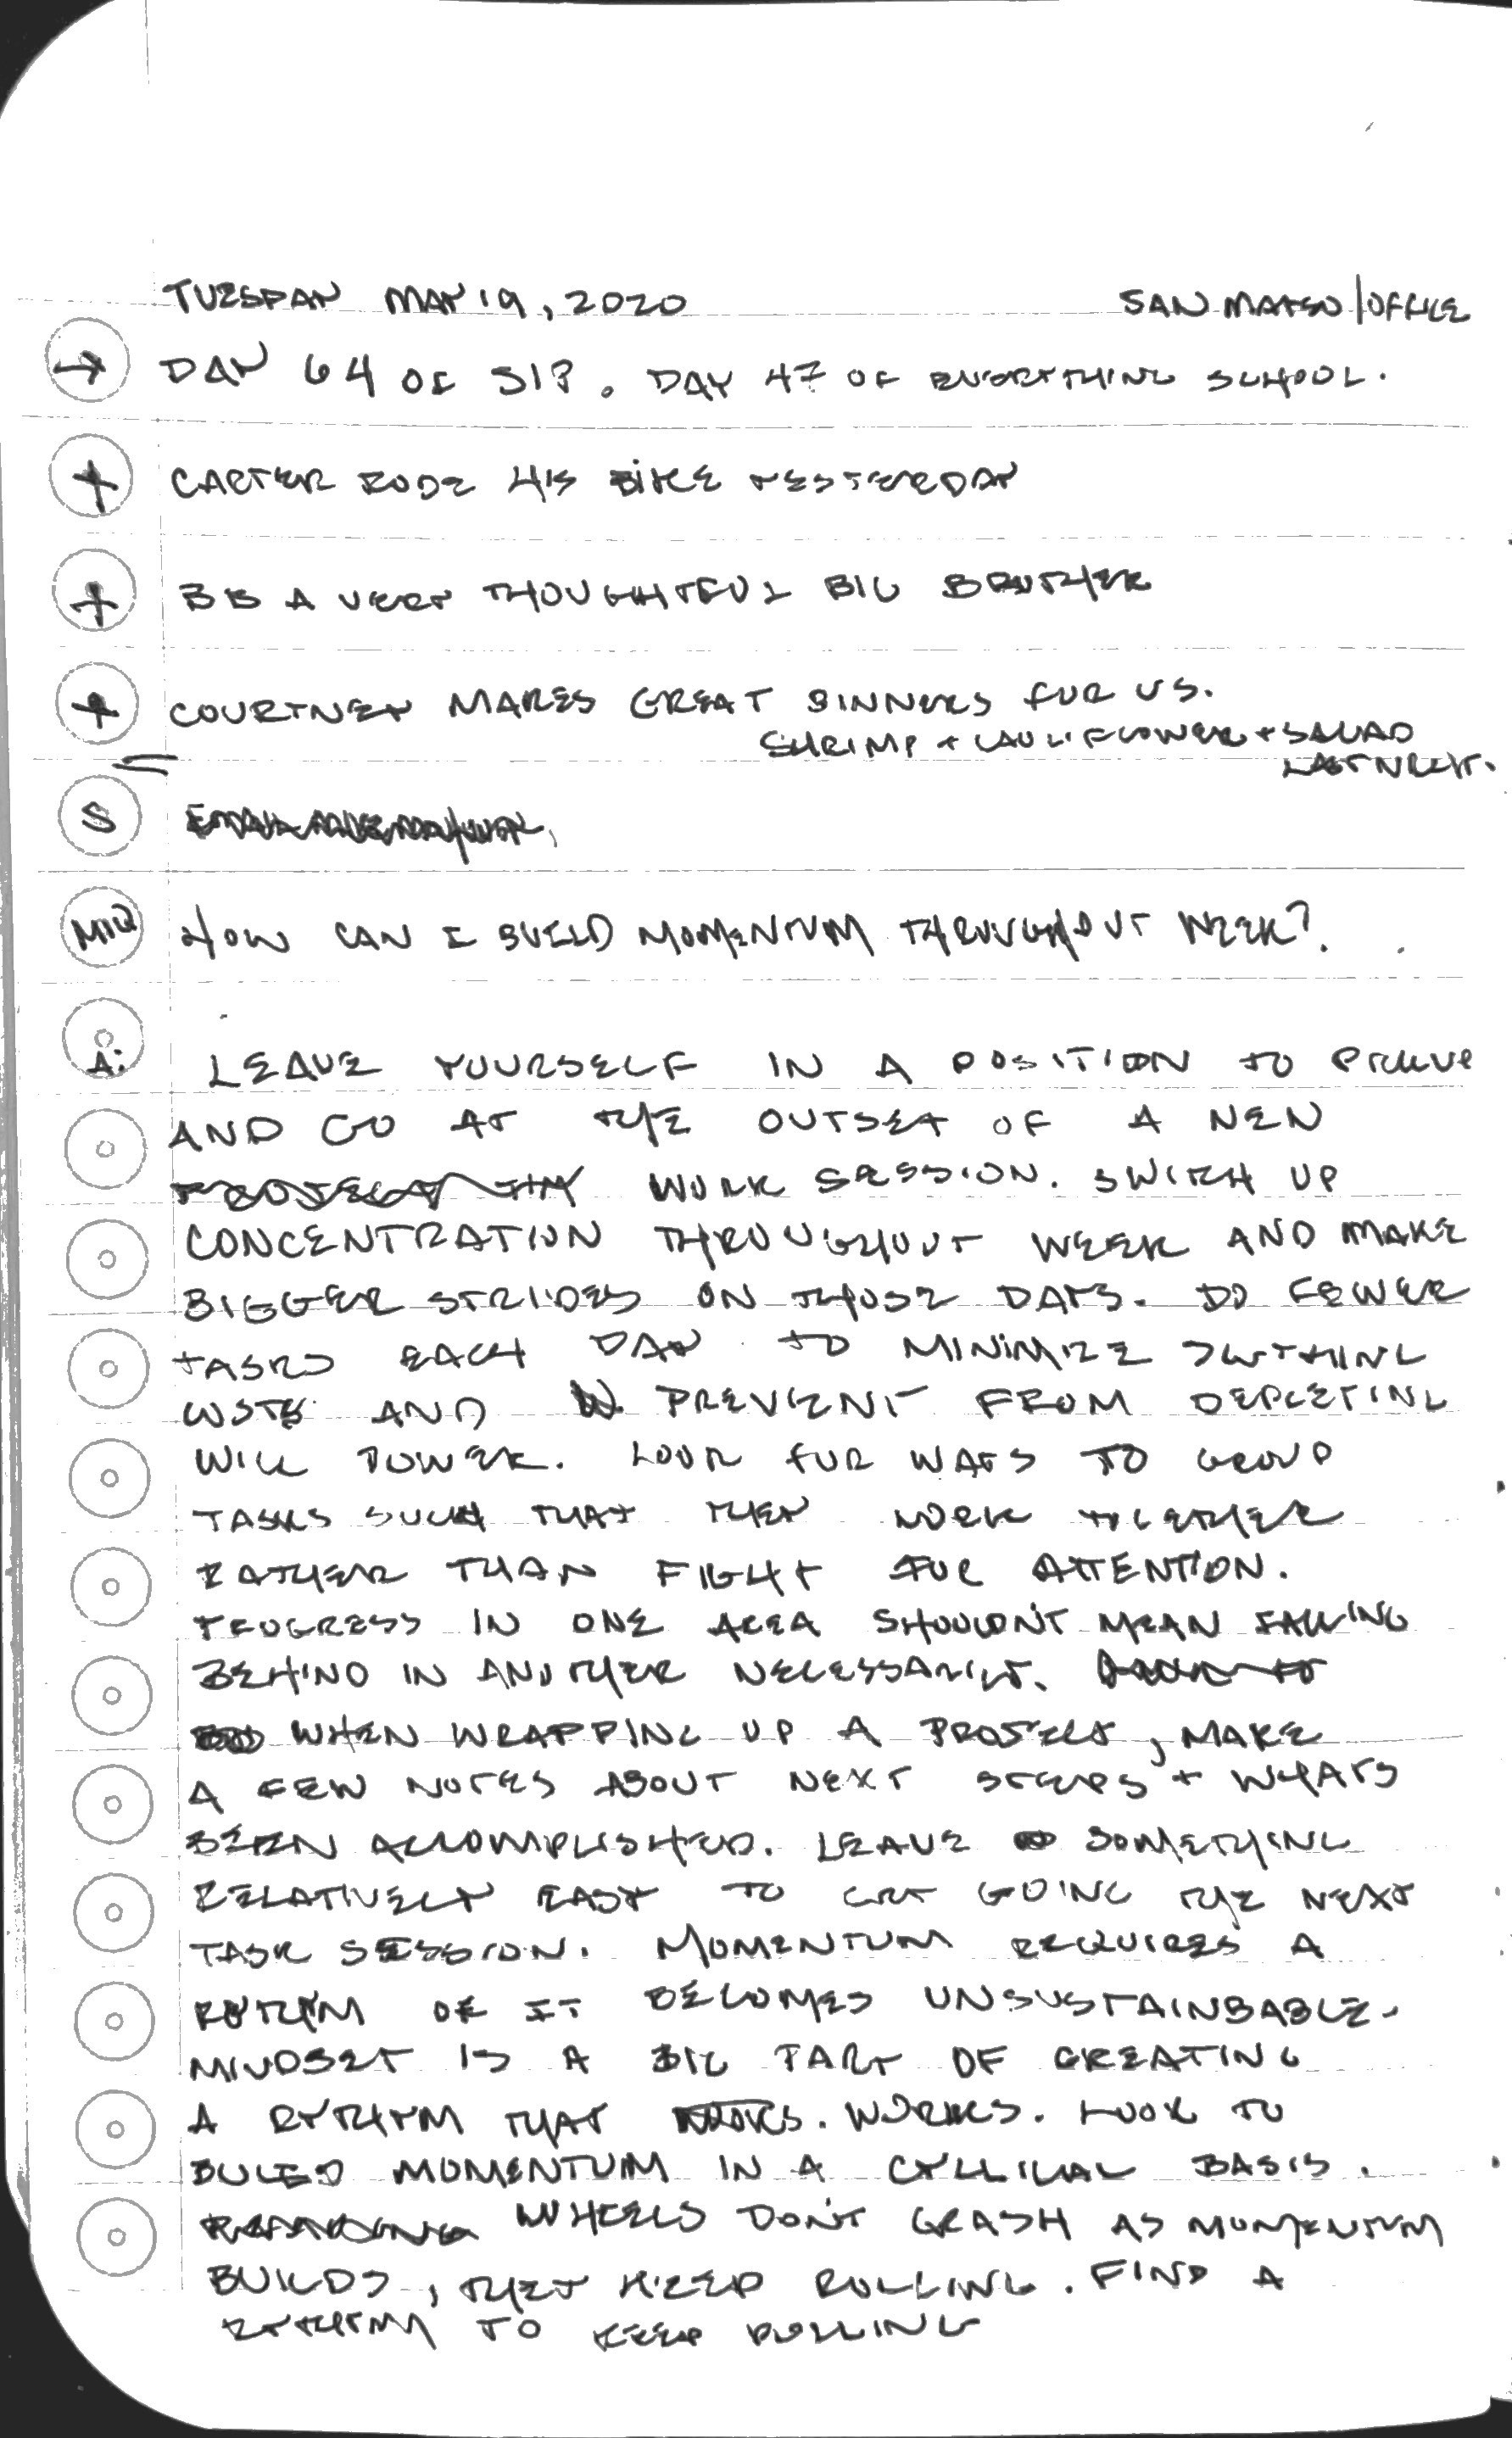 TUESDAY MAY 19, 2020 SAN MATEO/OFFICE
→ DAY 64 OF SIP. DAY 47 OF EVERYTHING SCHOOL.
+ CARTER RODE HIS BIKE YESTERDAY
+ B IS A VERY THOUGHTFUL BIG BROTHER
+ COURTNEY MAKES GREAT DINNERS FOR US.
SHRIMP + CAULIFLOWER + SALAD
LAST NIGHT.
S
MIQ HOW CAN I BUILD MOMENTUM THROUGHOUT WEEK?
A: LEAVE YOURSELF IN A POSITION TO PICKUP
AND GO AT THE OUTSET OF A NEW
WORK SESSION. SWITCH UP
CONCENTRATION THROUGHOUT WEEK AND MAKE
BIGGER STRIDES ON THOSE DAYS. DO FEWER
TASKS EACH DAY TO MINIMIZE SWITCHING
COSTS AND PREVENT FROM DEPLETING
WILL POWER. LOOK FOR WAYS TO GROUP
TASKS SUCH THAT THEY WORK TOGETHER
RATHER THAN FIGHT FOR ATTENTION.
PROGRESS IN ONE AREA SHOULDN'T MEAN FALLING
BEHIND IN ANOTHER NECESSARILY.
WHEN WRAPPING UP A PROJECT, MAKE
A FEW NOTES ABOUT NEXT STEPS + WHATS
BEEN ACCOMPLISHED. LEAVE SOMETHING
RELATIVELY EASY TO GET GOING THE NEXT
TASK SESSION. MOMENTUM REQUIRES A
RYTHYM OR IT BECOMES UNSUSTAINBABLE.
MINDSET IS A BIG PART OF CREATING
A RYTHYM THAT WORKS. LOOK TO
BUILD MOMENTUM IN A CYCLICAL BASIS.
WHEELS DON'T CRASH AS MOMENTUM
BUILDS, THEY KEEP ROLLING. FIND A
RYTHYM TO KEEP ROLLING